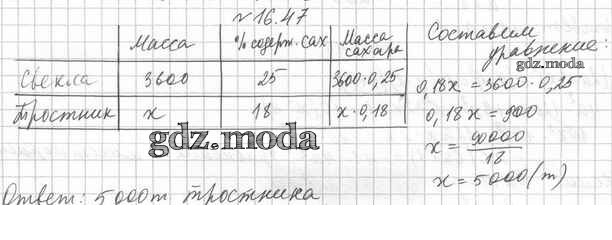 №16.47
Масса % содерж. сах Масса сахара
Свекла 3600 25 3600·0,25
Тростник x 18 x·0,18
gdz.moda
Составим уравнение:
gdz.moda
0,18x = 3600·0,25
0,18x = 900
x = 90000/18
x = 5000 (т)
Ответ: 5000т тростника